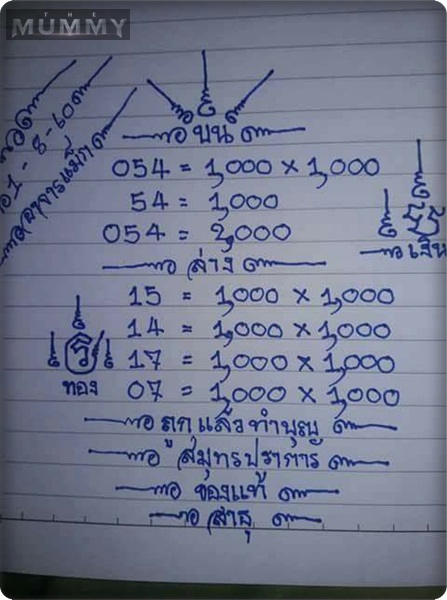 THE
MUMMY
งวด
1-8-60
อาจารแม็ก
บน
054 = 1,000 × 1,000
54 = 1,000
054 = 2,000
เงิน
ล่าง
15 = 1,000 × 1,000
14 = 1,000 × 1,000
17 = 1,000 × 1,000
07 = 1,000 × 1,000
ทอง
ถูกแล้วทำบุญ
สมุทรปราการ
ของแท้
สาธุ